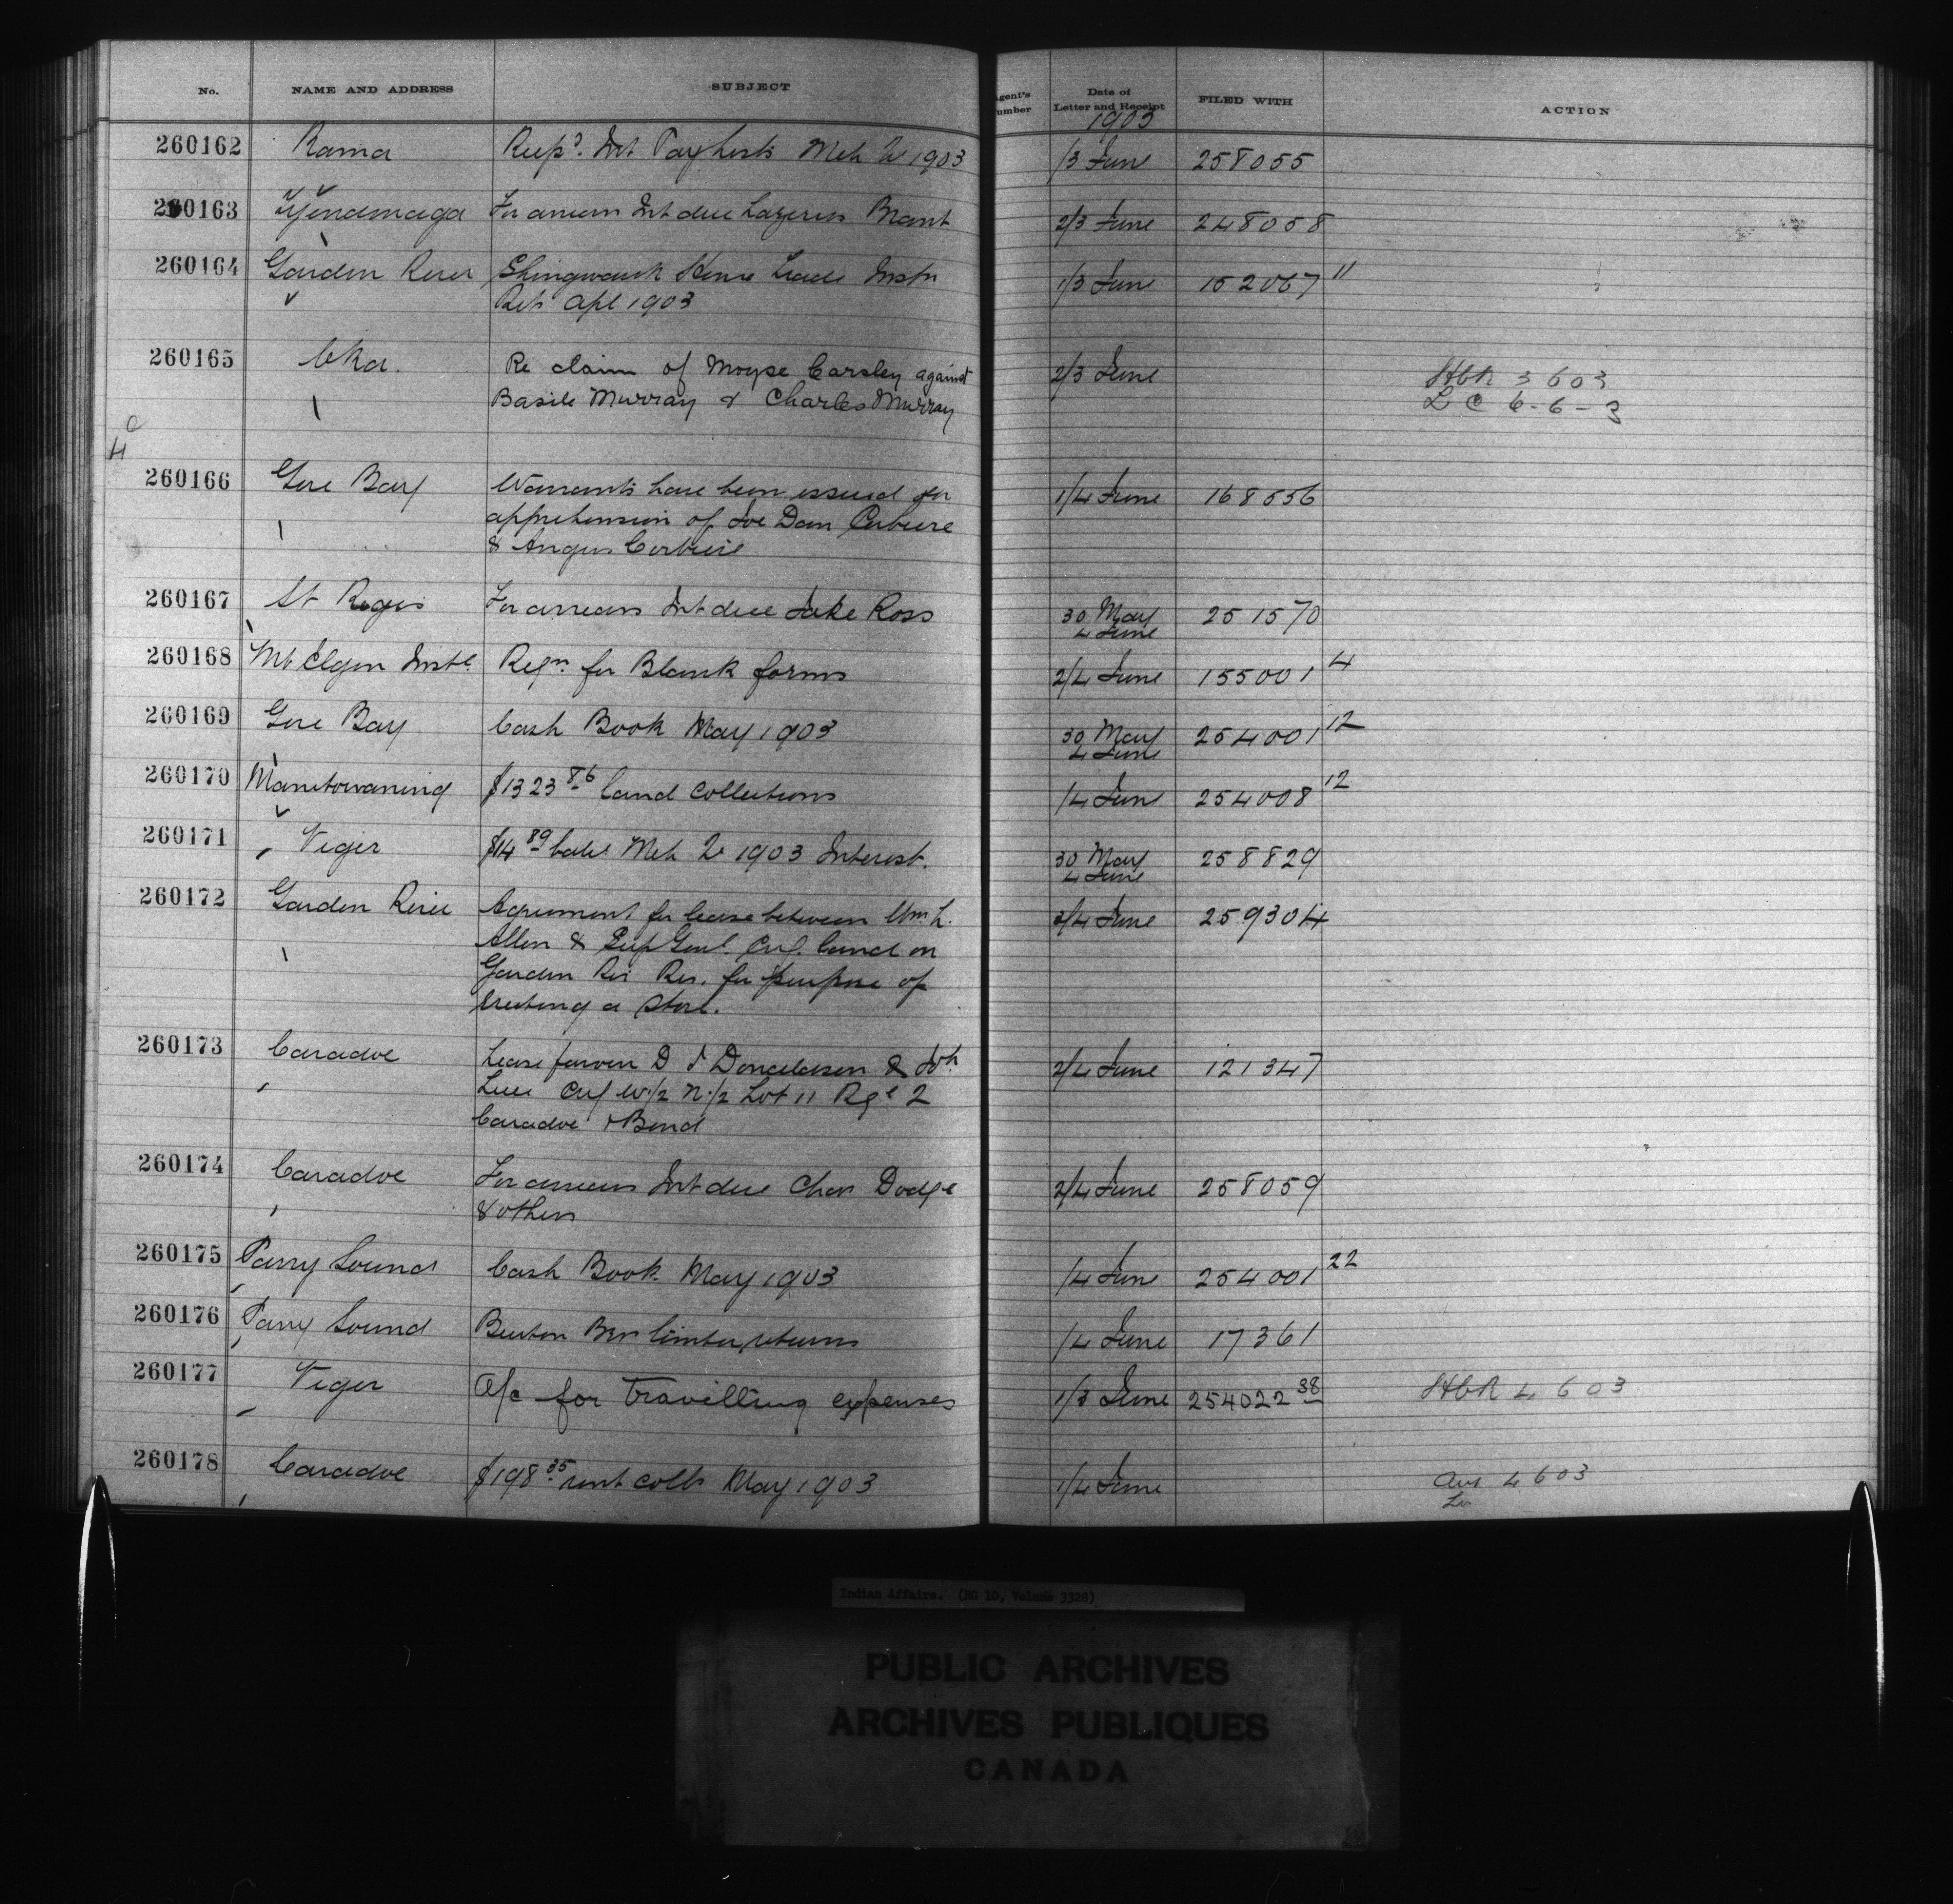 No. NAME AND ADDRESS SUBJECT Agent's Number Date of Letter and Receipt FILED WITH ACTION
1903
260162 Rama Recpd. Int Paylists Mch Qr 1903 /3 June 258055
260163 Tyendinaga For arrears Int due Lazerus Brant 2/3 June 248058
260164 Garden River Shingwauk Home Trade Instn 1/3 June 152067 11
Ret. Apl 1903
260165 Oka. Re claim of Moyse Carsley against 2/3 June HCR 3 6 03
Basile Murray & Charles Murray L C 6-6-3
260166 Gore Bay Warrants have been issued for 1/4 June 168556
apprehension of Joe Dan Corbiere
& Angus Corbiere
260167 St Regis For arrears Int due Jake Ross 30 May 251570
4 June
260168 Mt Elgin Inste Reqn. for Blank forms 2/4 June 155001 4
260169 Gore Bay Cash Book May 1903 30 May 254001 12
4 June
260170 Manitowaning $1323 86 land collections /4 June 254008 12
260171 Viger $14 89 bale Mch Qr 1903 Interest. 30 May 258829
4 June
260172 Garden River Agreement for lease between Wm. L. 3/4 June 259304
Allen & Sup Genl. cvg. land on
Garden Riv Res. for purpose of
erecting a store.
260173 Caradoc Lease favor D J Donaldson & Jno 2/4 June 121347
cvg W/2 N./2 Lot 11 Rge 2
Caradoc & Bond
260174 Caradoc For arrears Int due Chas Dodge 2/4 June 258059
& others
260175 Parry Sound Cash Book May 1903 /4 June 254001 22
260176 Parry Sound Burton Bros timber returns /4 June 17361
260177 Viger A/c for travelling expenses 1/3 June 254022 38 HCR 4 6 03
260178 Caradoc $198 35 rent colls May 1903 1/4 June 4 6 03
Indian Affairs. (RG 10, Volume 3328)
PUBLIC ARCHIVES
ARCHIVES PUBLIQUES
CANADA